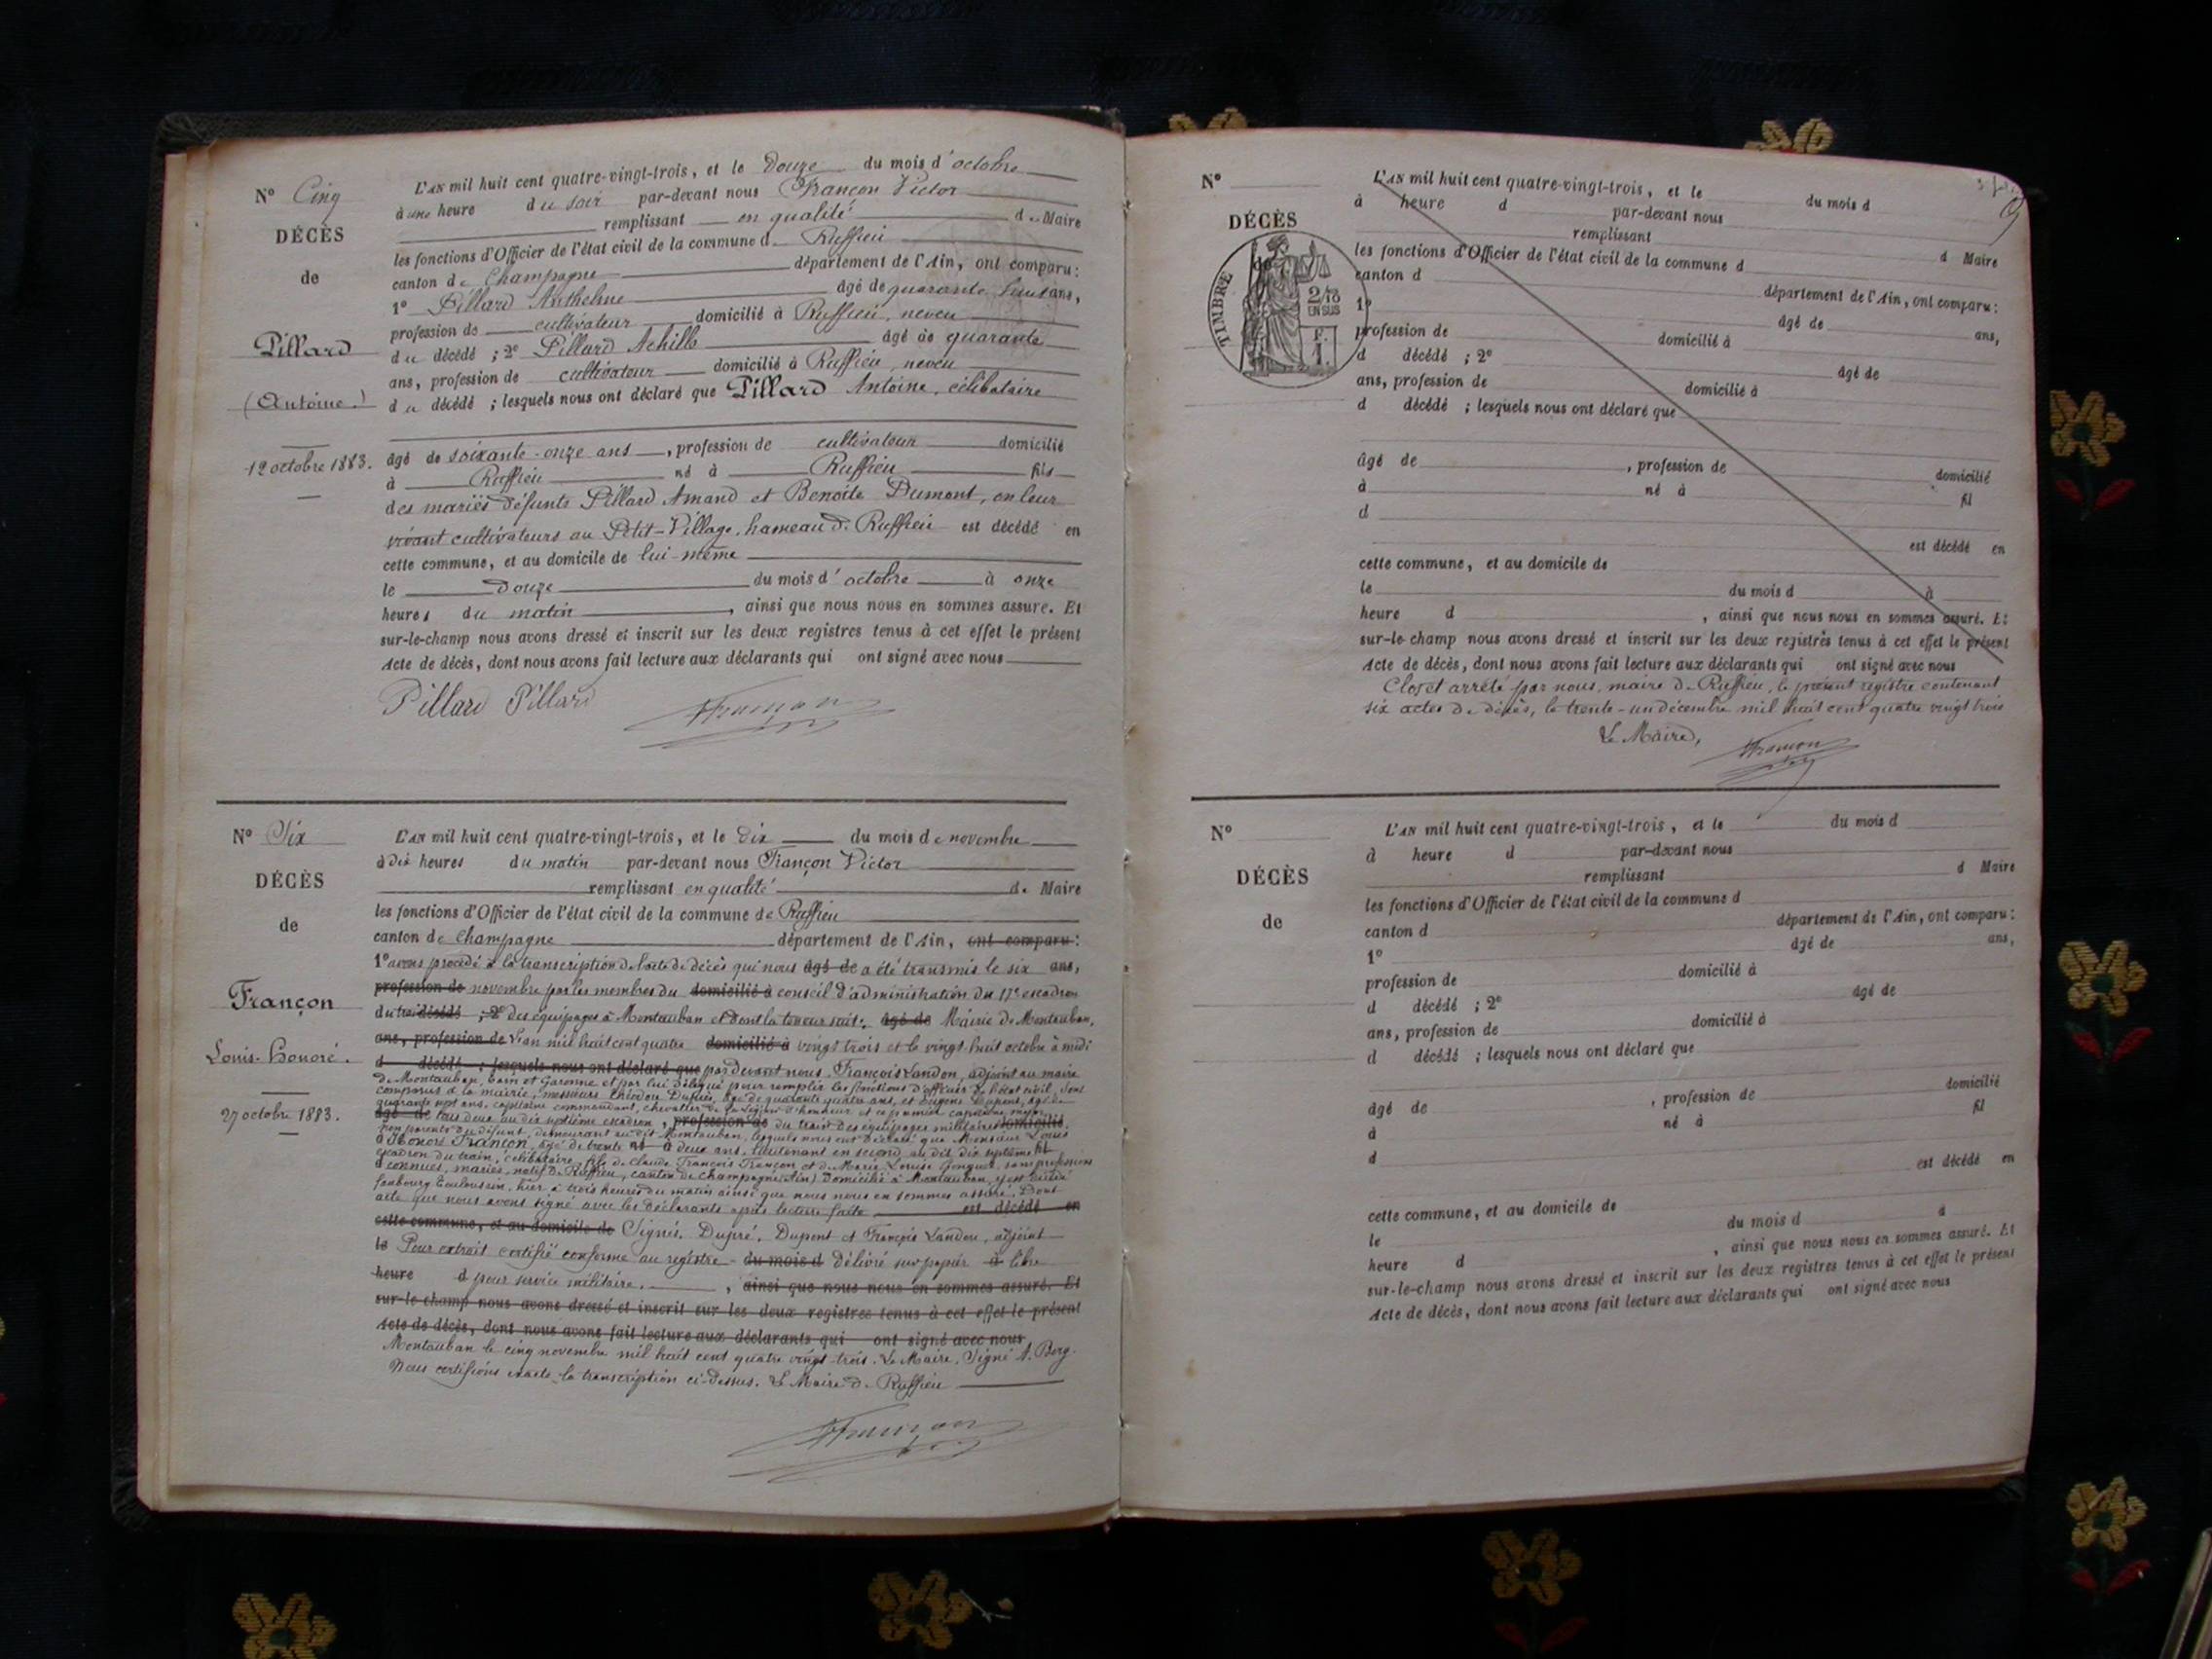 N° Cinq
DÉCÈS
de
Pillard
(Antoine.)
12 octobre 1883.
L'AN mil huit cent quatre-vingt-trois, et le douze du mois d'octobre
à une heure du soir par-devant nous Françon Victor
remplissant en qualité de Maire
les fonctions d'Officier de l'état civil de la commune de Ruffieu
canton de Champagne département de l'Ain, ont comparu :
1° Pillard Anthelme âgé de quarante huit ans,
profession de cultivateur domicilié à Ruffieu, neveu
du décédé ; 2° Pillard Achille âgé de quarante
ans, profession de cultivateur domicilié à Ruffieu, neveu
du décédé ; lesquels nous ont déclaré que Pillard Antoine, célibataire
âgé de soixante-onze ans, profession de cultivateur domicilié
à Ruffieu né à Ruffieu fils
des mariés défunts Pillard Amand et Benoite Dumont, en leur
vivant cultivateurs au Petit-Village, hameau de Ruffieu est décédé en
cette commune, et au domicile de lui-même
le douze du mois d'octobre à onze
heures du matin, ainsi que nous nous en sommes assuré. Et
sur-le-champ nous avons dressé et inscrit sur les deux registres tenus à cet effet le présent
Acte de décès, dont nous avons fait lecture aux déclarants qui ont signé avec nous
Pillard Pillard Françon
N° Six
DÉCÈS
de
Françon
Louis-Honoré.
27 octobre 1883.
L'AN mil huit cent quatre-vingt-trois, et le dix du mois de novembre
à dix heures du matin par-devant nous Françon Victor
remplissant en qualité de Maire
les fonctions d'Officier de l'état civil de la commune de Ruffieu
canton de Champagne département de l'Ain, ont comparu :
1° avons procédé à la transcription de l'acte de décès qui nous âgé de a été transmis le six ans,
profession de novembre par les membres du domicilié à conseil d'administration du 17e escadron
du train décédé ; 2° des équipages à Montauban et dont la teneur suit : âgé de Mairie de Montauban,
ans, profession de L'an mil huit cent quatre domicilié à vingt trois et le vingt-huit octobre à midi
d décédé ; lesquels nous ont déclaré que par devant nous, François Landon, adjoint au maire
de Montauban, Tarn et Garonne et par lui délégué pour remplir les fonctions d'officier de l'état civil, sont
comparus à la mairie, messieurs Théodore Dupiré, âgé de quarante quatre ans, et Eugène Dupont, âgé de
quarante sept ans, capitaine commandant, chevalier de la Légion d'honneur et le premier capitaine major
âgé de tous deux au dix septième escadron, profession de du train des équipages militaires domicilié
non parents du défunt, demeurant au dit Montauban, lesquels nous ont déclaré que Monsieur Louis
à Honoré Françon, âgé de trente né à deux ans, lieutenant en second au dit dix septième fil
escadron du train, célibataire, fils de Claude François Françon et de Marie Louise sans profession
d connues, mariés, natif de Ruffieu, canton de Champagne (Ain) domicilié à Montauban, y est décédé
faubourg Toulousain, hier à trois heures du matin ainsi que nous nous en sommes assuré. Dont
acte que nous avons signé avec les déclarants après lecture faite est décédé en
cette commune, et au domicile de Signés, Dupiré, Dupont et François Landon, adjoint
le Pour extrait certifié conforme au registre du mois d délivré sur papier à libre
heure d pour service militaire. , ainsi que nous nous en sommes assuré. Et
sur-le-champ nous avons dressé et inscrit sur les deux registres tenus à cet effet le présent
Acte de décès, dont nous avons fait lecture aux déclarants qui ont signé avec nous
Montauban le cinq novembre mil huit cent quatre vingt-trois. Le Maire, Signé A. Berg.
Nous certifions exacte la transcription ci-dessus. Le Maire de Ruffieu
Françon
N°
DÉCÈS
de
TIMBRE
2/10
EN SUS
F.
1.
L'AN mil huit cent quatre-vingt-trois, et le du mois d
à heure d par-devant nous
remplissant d Maire
les fonctions d'Officier de l'état civil de la commune d
canton d département de l'Ain, ont comparu :
1° âgé de ans,
profession de domicilié à
d décédé ; 2° âgé de
ans, profession de domicilié à
d décédé ; lesquels nous ont déclaré que
âgé de , profession de domicilié
à né à fil
d
est décédé en
cette commune, et au domicile de
le du mois d à
heure d , ainsi que nous nous en sommes assuré. Et
sur-le-champ nous avons dressé et inscrit sur les deux registres tenus à cet effet le présent
Acte de décès, dont nous avons fait lecture aux déclarants qui ont signé avec nous
Clos et arrêté par nous, maire de Ruffieu, le présent registre contenant
six actes de décès, le trente-un décembre mil huit cent quatre vingt trois
Le Maire,
Françon
N°
DÉCÈS
de
L'AN mil huit cent quatre-vingt-trois, et le du mois d
à heure d par-devant nous
remplissant d Maire
les fonctions d'Officier de l'état civil de la commune d
canton d département de l'Ain, ont comparu :
1° âgé de ans,
profession de domicilié à
d décédé ; 2° âgé de
ans, profession de domicilié à
d décédé ; lesquels nous ont déclaré que
âgé de , profession de domicilié
à né à fil
d
est décédé en
cette commune, et au domicile de
le du mois d à
heure d , ainsi que nous nous en sommes assuré. Et
sur-le-champ nous avons dressé et inscrit sur les deux registres tenus à cet effet le présent
Acte de décès, dont nous avons fait lecture aux déclarants qui ont signé avec nous